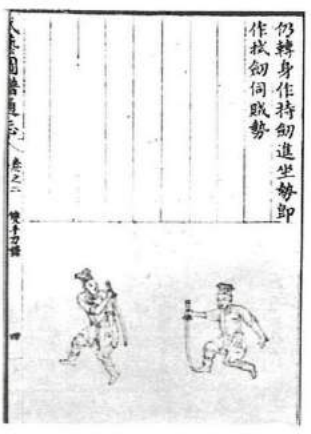 仍轉身作持劒進坐勢即
作拭劒伺賊勢
武藝圖譜通志
卷之二
雙手刀譜
四